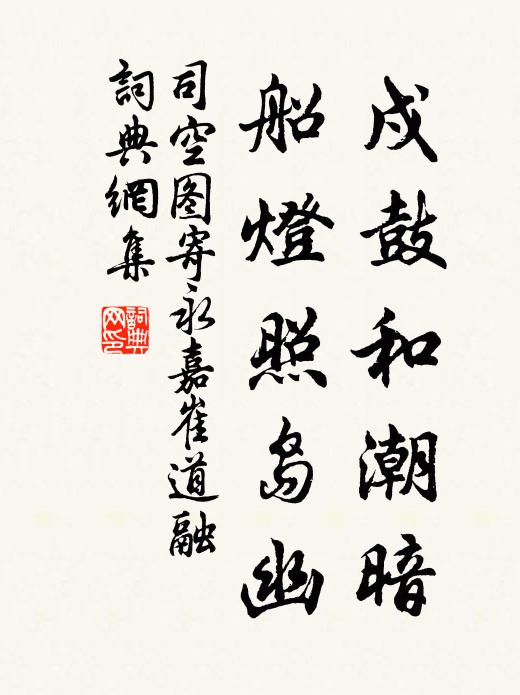 戍鼓和潮暗
船燈照岛幽
司空图寄永嘉崔道融
詞典網集
詞典
网印